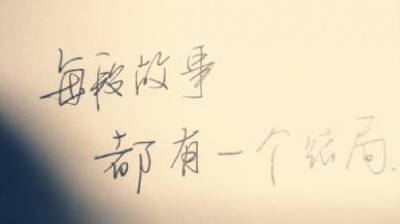 每段故事
都有一个结局.